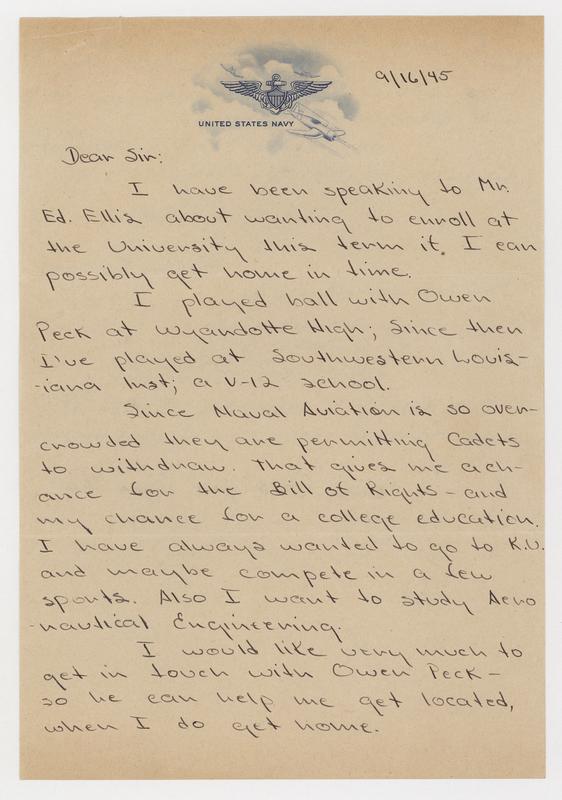 9/16/45
UNITED STATES NAVY
Dear Sir:
I have been speaking to Mr.
Ed. Ellis about wanting to enroll at
the University this term if I can
possibly get home in time.
I played ball with Owen
Peck at Wyandotte High; Since then
I've played at Southwestern Louis-
-iana Inst; a V-12 school.
Since Naval Aviation is so over-
crowded they are permitting Cadets
to withdraw. That gives me a ch-
ance for the Bill of Rights - and
my chance for a college education.
I have always wanted to go to K.U.
and maybe compete in a few
sports. Also I want to study Aero
-nautical Engineering.
I would like very much to
get in touch with Owen Peck -
so he can help me get located,
when I do get home.